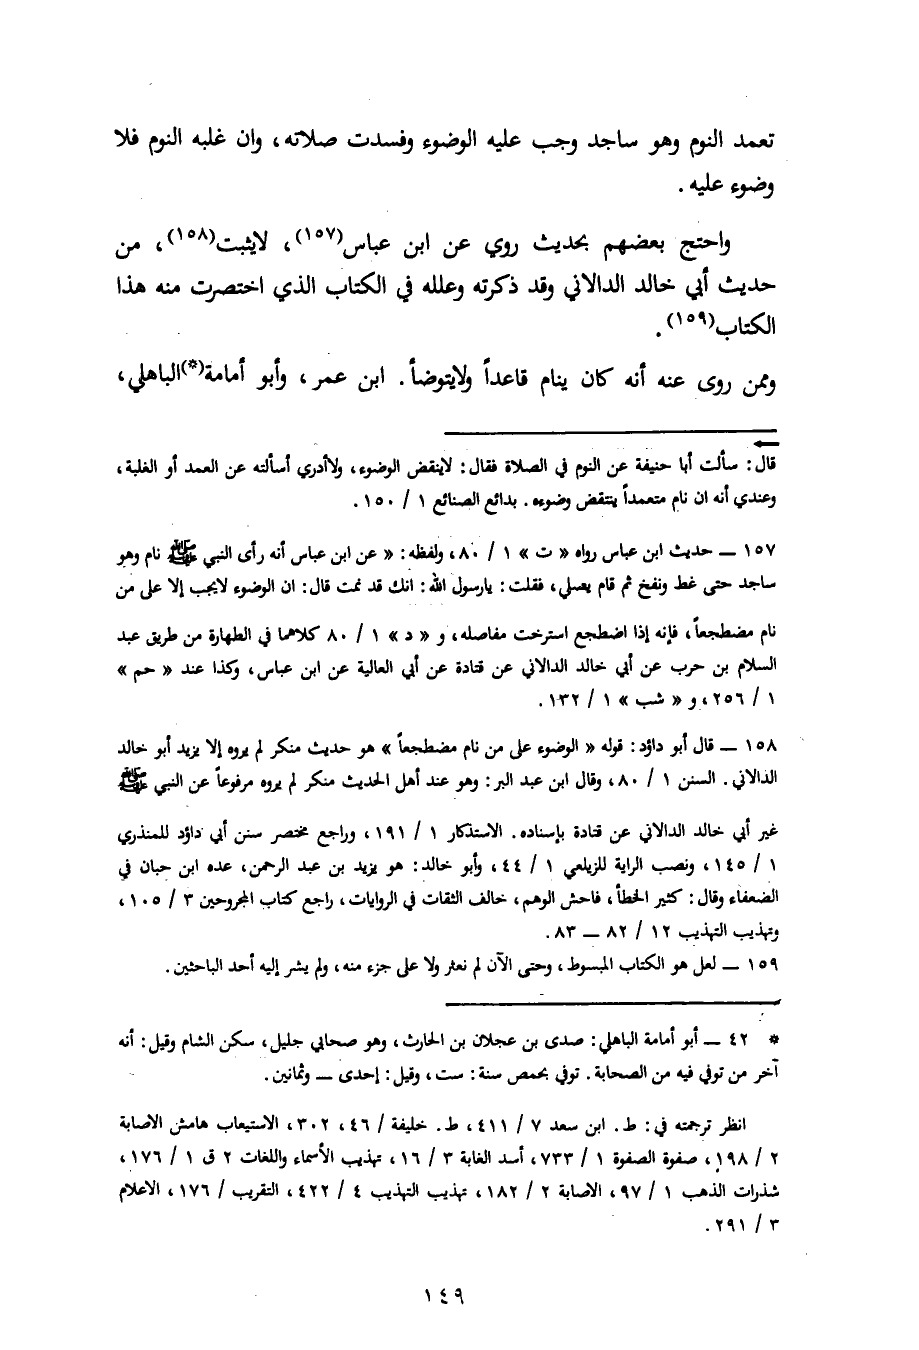 تعمد النوم وهو ساجد وجب عليه الوضوء وفسدت صلاته، وان غلبه النوم فلا
وضوء عليه.
واحتج بعضهم بحديث روي عن ابن عباس(١٥٧)، لايثبت(١٥٨)، من
حديث أبي خالد الدالاني وقد ذكرته وعلله في الكتاب الذي اختصرت منه هذا
الكتاب(١٥٩).
وممن روى عنه أنه كان ينام قاعداً ولايتوضأ. ابن عمر، وأبو أمامة(*)الباهلي،
قال: سألت أبا حنيفة عن النوم في الصلاة فقال: لاينقض الوضوء، ولاأدري أسألته عن العمد أو الغلبة،
وعندي أنه ان نام متعمداً ينتقض وضوءه. بدائع الصنائع ١ / ١٥٠.
١٥٧ ــ حديث ابن عباس رواه « ت » ١ / ٨٠، ولفظه: « عن ابن عباس أنه رأى النبي ﷺ نام وهو
ساجد حتى غط ونفخ ثم قام يصلي، فقلت: يارسول الله: انك قد نمت قال: ان الوضوء لايجب إلا على من
نام مضطجعاً، فإنه إذا اضطجع استرخت مفاصله، و « د » ١ / ٨٠ كلاهما في الطهارة من طريق عبد
السلام بن حرب عن أبي خالد الدالاني عن قتادة عن أبي العالية عن ابن عباس، وكذا عند « حم »
١ / ٢٥٦، و « شب » ١ / ١٣٢.
١٥٨ ــ قال أبو داؤد: قوله « الوضوء على من نام مضطجعاً » هو حديث منكر لم يروه إلا يزيد أبو خالد
الدالاني. السنن ١ / ٨٠، وقال ابن عبد البر: وهو عند أهل الحديث منكر لم يروه مرفوعاً عن النبي ﷺ
غير أبي خالد الدالاني عن قتادة بإسناده. الاستذكار ١ / ١٩١، وراجع مختصر سنن أبي داؤد للمنذري
١ / ١٤٥، ونصب الراية للزيلعي ١ / ٤٤، وأبو خالد: هو يزيد بن عبد الرحمن، عده ابن حبان في
الضعفاء وقال: كثير الخطأ، فاحش الوهم، خالف الثقات في الروايات، راجع كتاب المجروحين ٣ / ١٠٥،
وتهذيب التهذيب ١٢ / ٨٢ ــ ٨٣.
١٥٩ ــ لعل هو الكتاب المبسوط، وحتى الآن لم نعثر ولا على جزء منه، ولم يشر إليه أحد الباحثين.
* ٤٢ ــ أبو أمامة الباهلي: صدى بن عجلان بن الحارث، وهو صحابي جليل، سكن الشام وقيل: أنه
آخر من توفي فيه من الصحابة. توفي بحمص سنة: ست، وقيل: إحدى ــ وثمانين.
انظر ترجمته في: ط. ابن سعد ٧ / ٤١١، ط. خليفة / ٤٦، ٣٠٢، الاستيعاب هامش الاصابة
٢ / ١٩٨، صفوة الصفوة ١ / ٧٣٣، أسد الغابة ٣ / ١٦، تهذيب الأسماء واللغات ٢ ق ١ / ١٧٦،
شذرات الذهب ١ / ٩٧، الاصابة ٢ / ١٨٢، تهذيب التهذيب ٤ / ٤٢٢، التقريب / ١٧٦، الاعلام
٣ / ٢٩١.
١٤٩